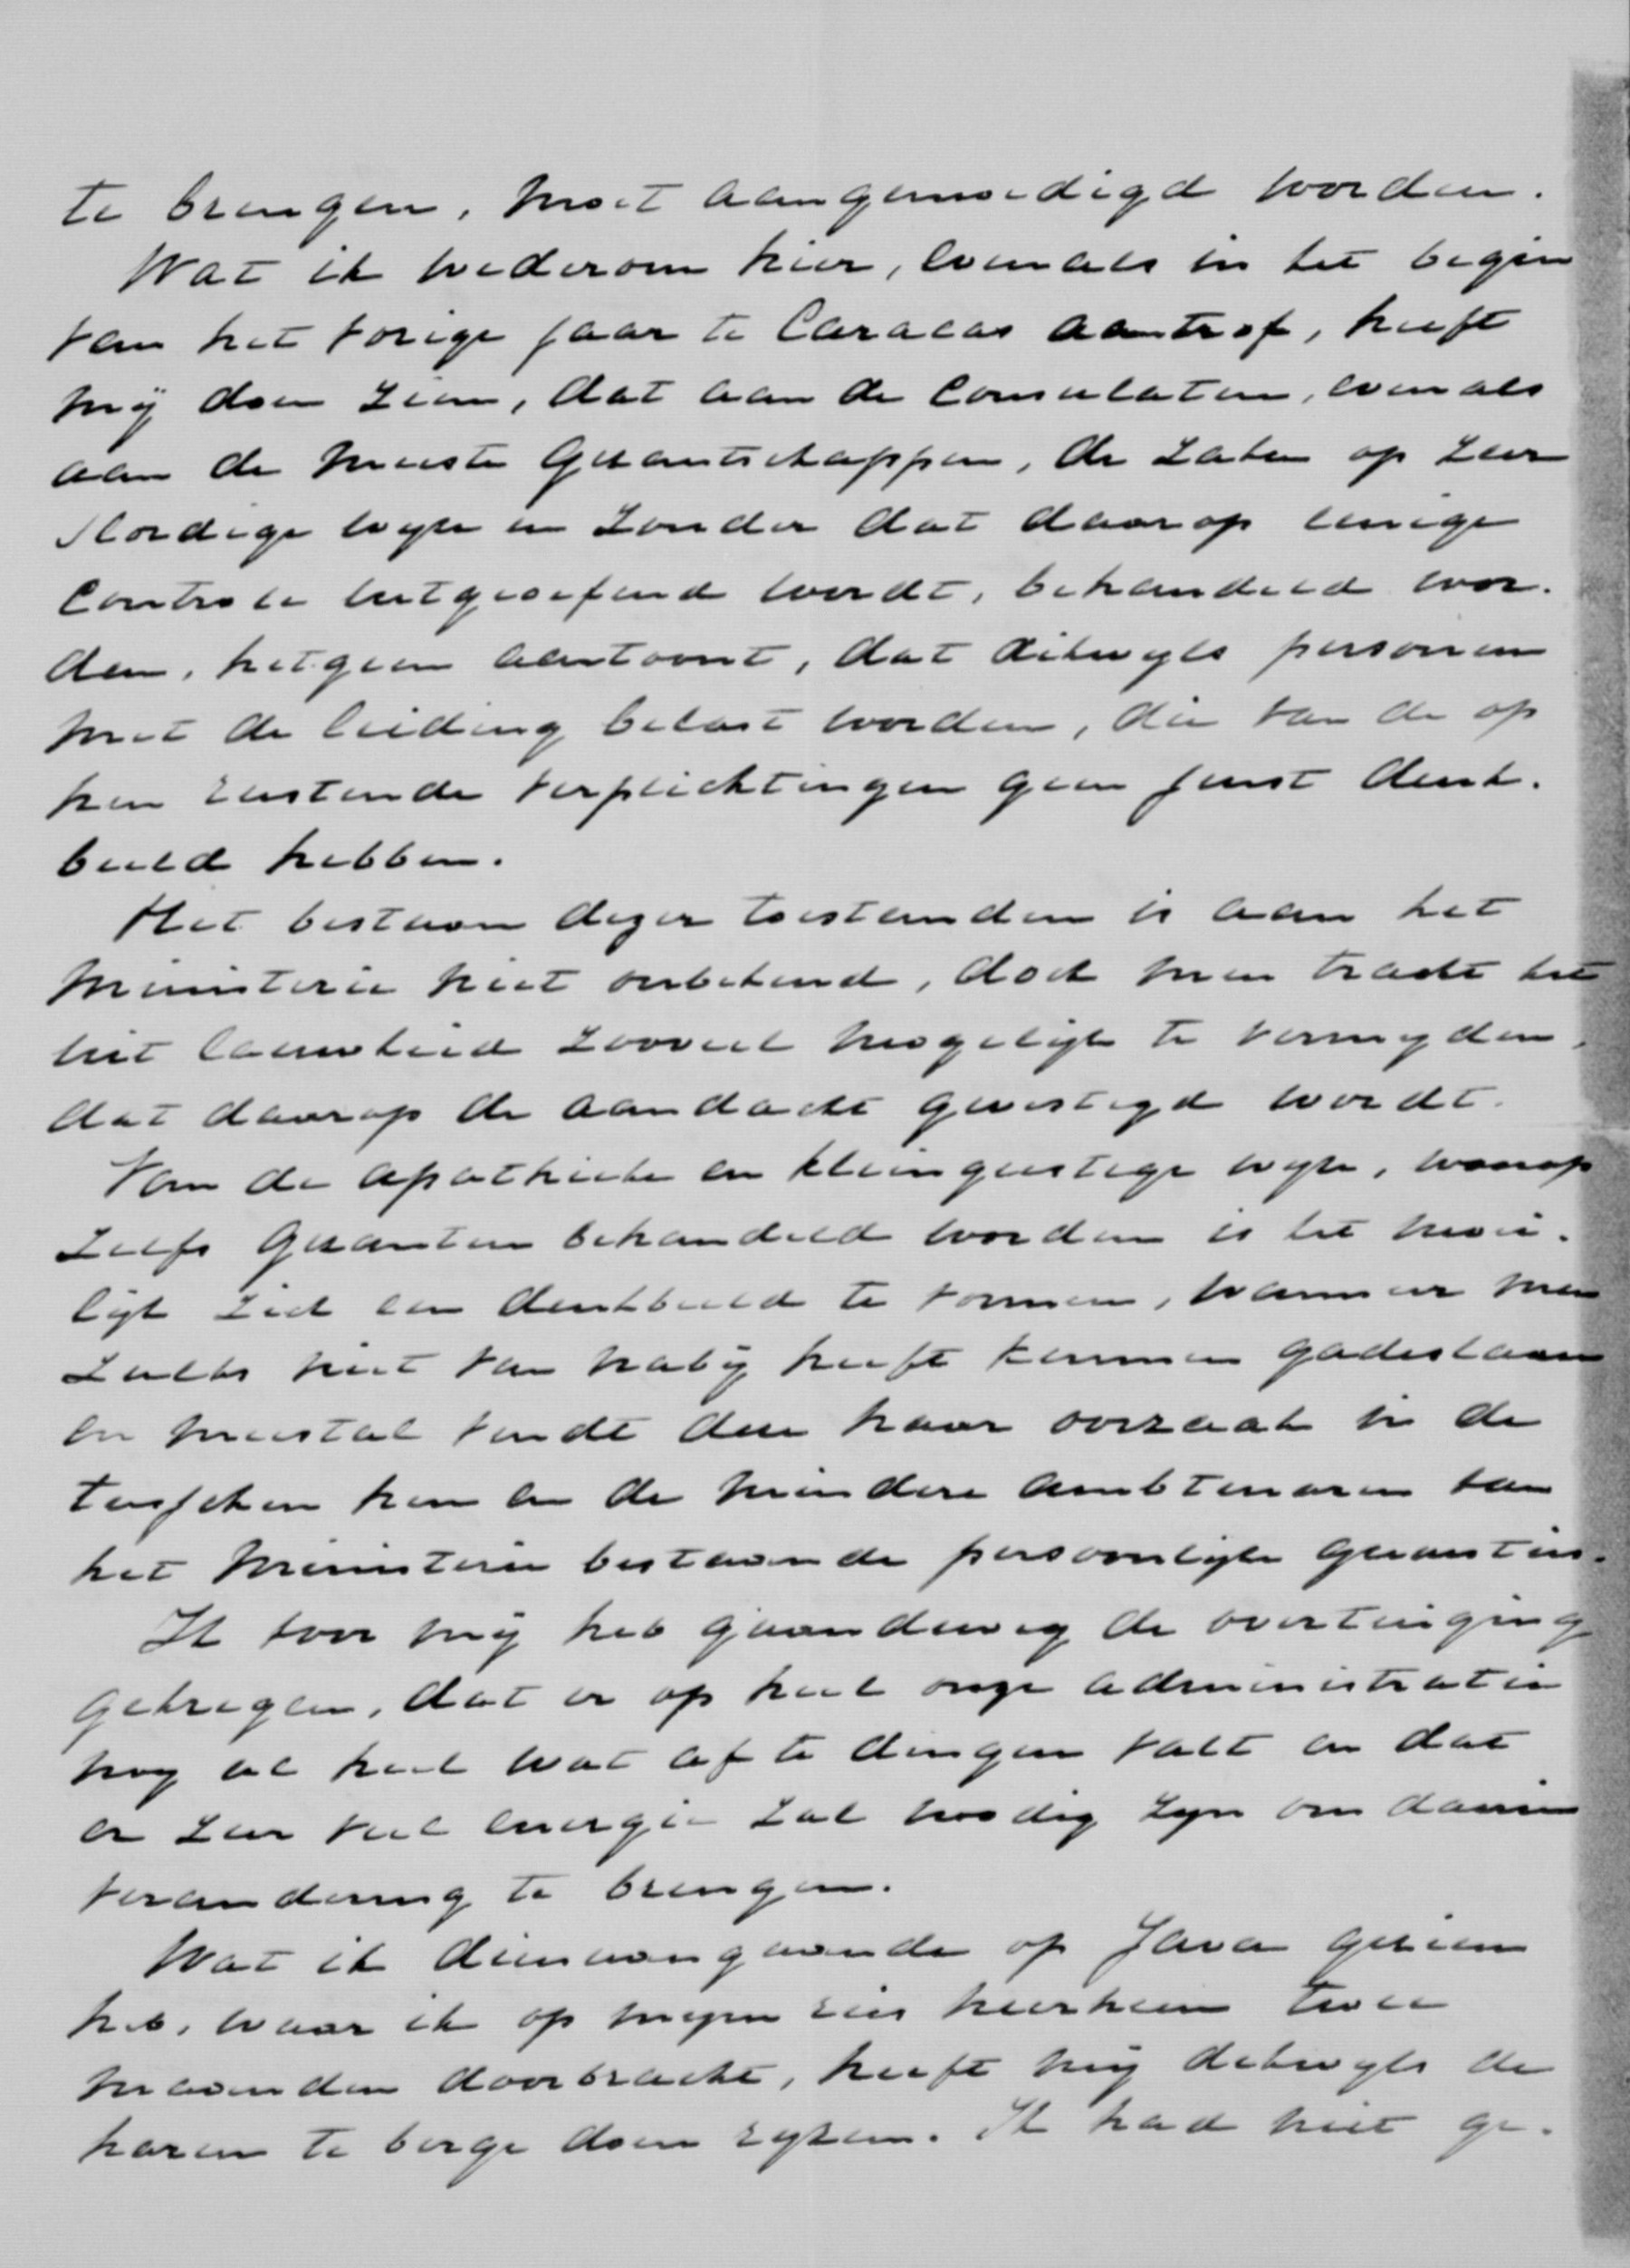 te brengen, moet aangemoedigd worden.
Wat ik wederom hier, evenals in het begin
van het vorige jaar te Caracas aantrof, heeft
mij doen zien, dat aan de Consulaten, evenals
aan de meeste Gezantschappen, de zaken op zeer
slordige wijze en zonder dat daarop eenige
Controle uitgeoefend wordt, behandeld wor-
den, hetgeen aantoont, dat dikwijls personen
met de leiding belast worden, die van de op
hen rustende verplichtingen geen juist denk-
beeld hebben.
Het bestaan dezer toestanden is aan het
Ministerie niet onbekend, doch men tracht het
uit lauwheid zooveel mogelijk te vermijden,
dat daarop de aandacht gevestigd wordt.
Van de apathieke en kleingeestige wijze, waarop
zelfs Gezanten behandeld worden is het moei-
lijk zich een denkbeeld te vormen, wanneer men
zulks niet van nabij heeft kunnen gadeslaan
en meestal vindt deze haar oorzaak in de
tusschen hen en de mindere ambtenaren van
het Ministerie bestaande persoonlijke quaestiën.
Ik voor mij heb gaandeweg de overtuiging
gekregen, dat er op heel onze administratie
nog al heel wat af te dingen valt en dat
er zeer veel energie zal noodig zijn om daarin
verandering te brengen.
Wat ik dienaangaande op Java gezien
heb, waar ik op mijne reis hierheen twee
maanden doorbracht, heeft mij dikwijls de
haren te berge doen rijzen. Ik had niet ge-